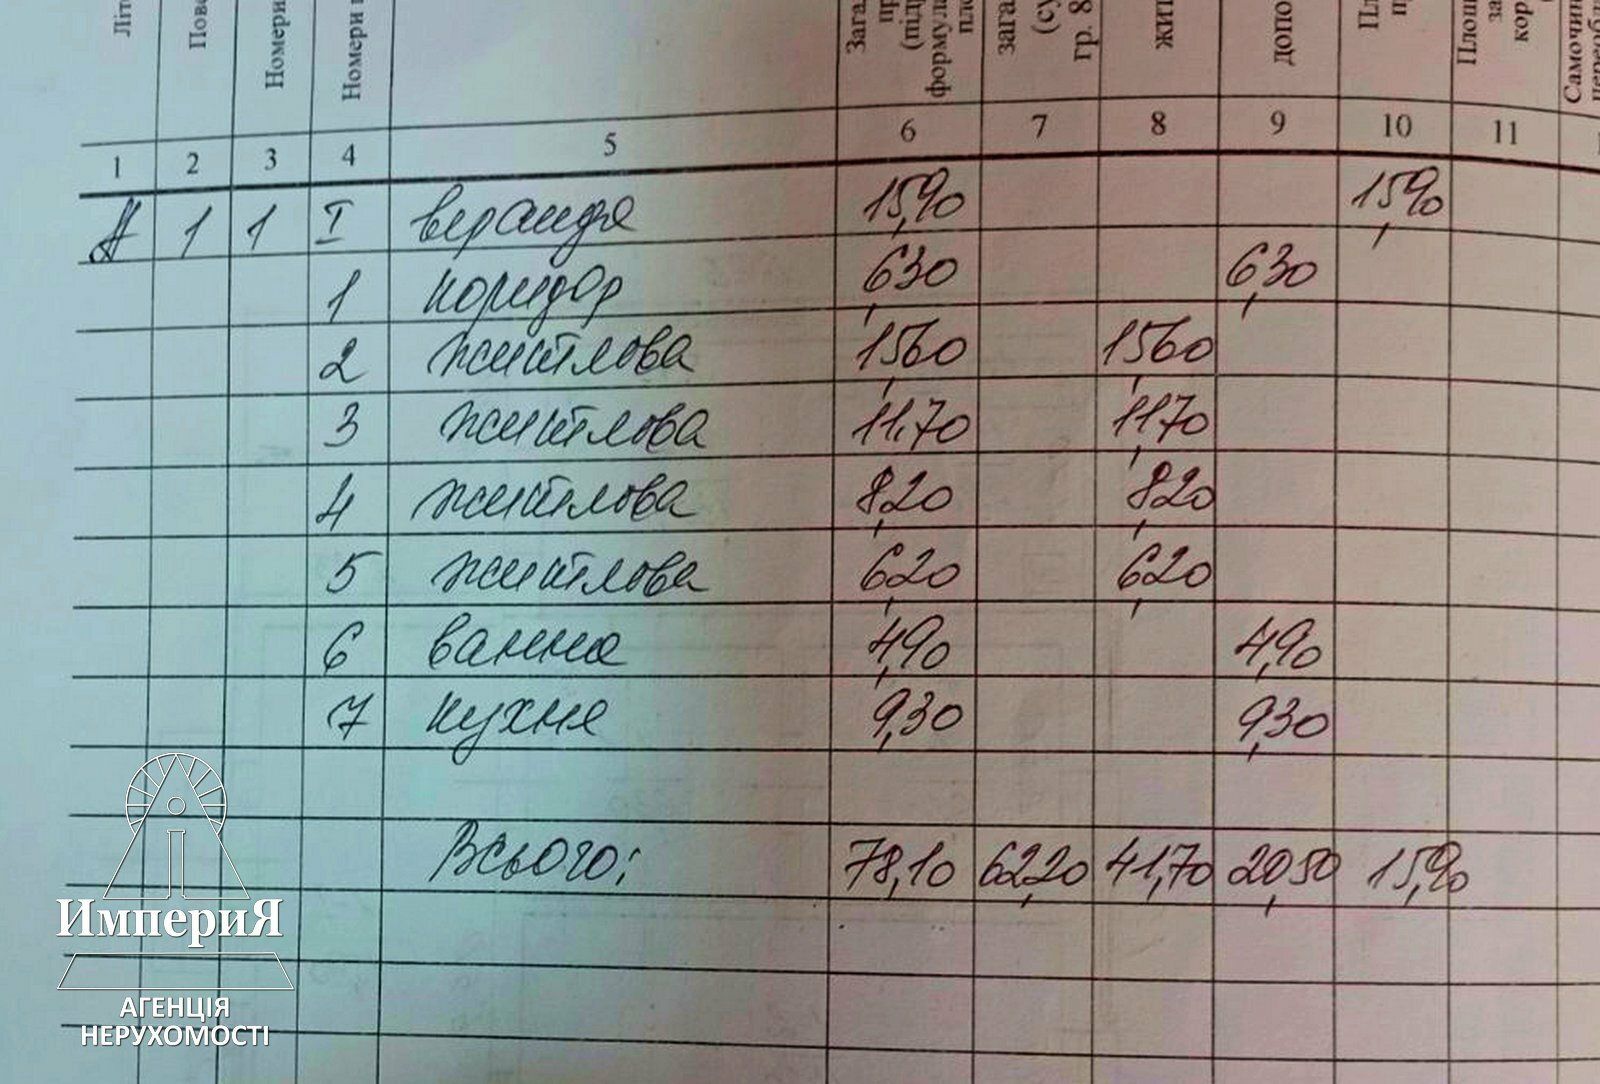 Літ
Пове
Номери
Номери п
Загал
пр
(підр
формула
пло
зага
(су
гр. 8
жит
допо
Пл
п
Площ
за
кор
Самочин
переобл
1 2 3 4 5 6 7 8 9 10 11
А 1 1 І веранда 15,90 15,90
1 коридор 6,30 6,30
2 житлова 15,60 15,60
3 житлова 11,70 11,70
4 житлова 8,20 8,20
5 житлова 6,20 6,20
6 ванна 4,90 4,90
7 кухня 9,30 9,30
Всього: 78,10 62,20 41,70 20,50 15,90
ИмпериЯ
АГЕНЦІЯ
НЕРУХОМОСТІ